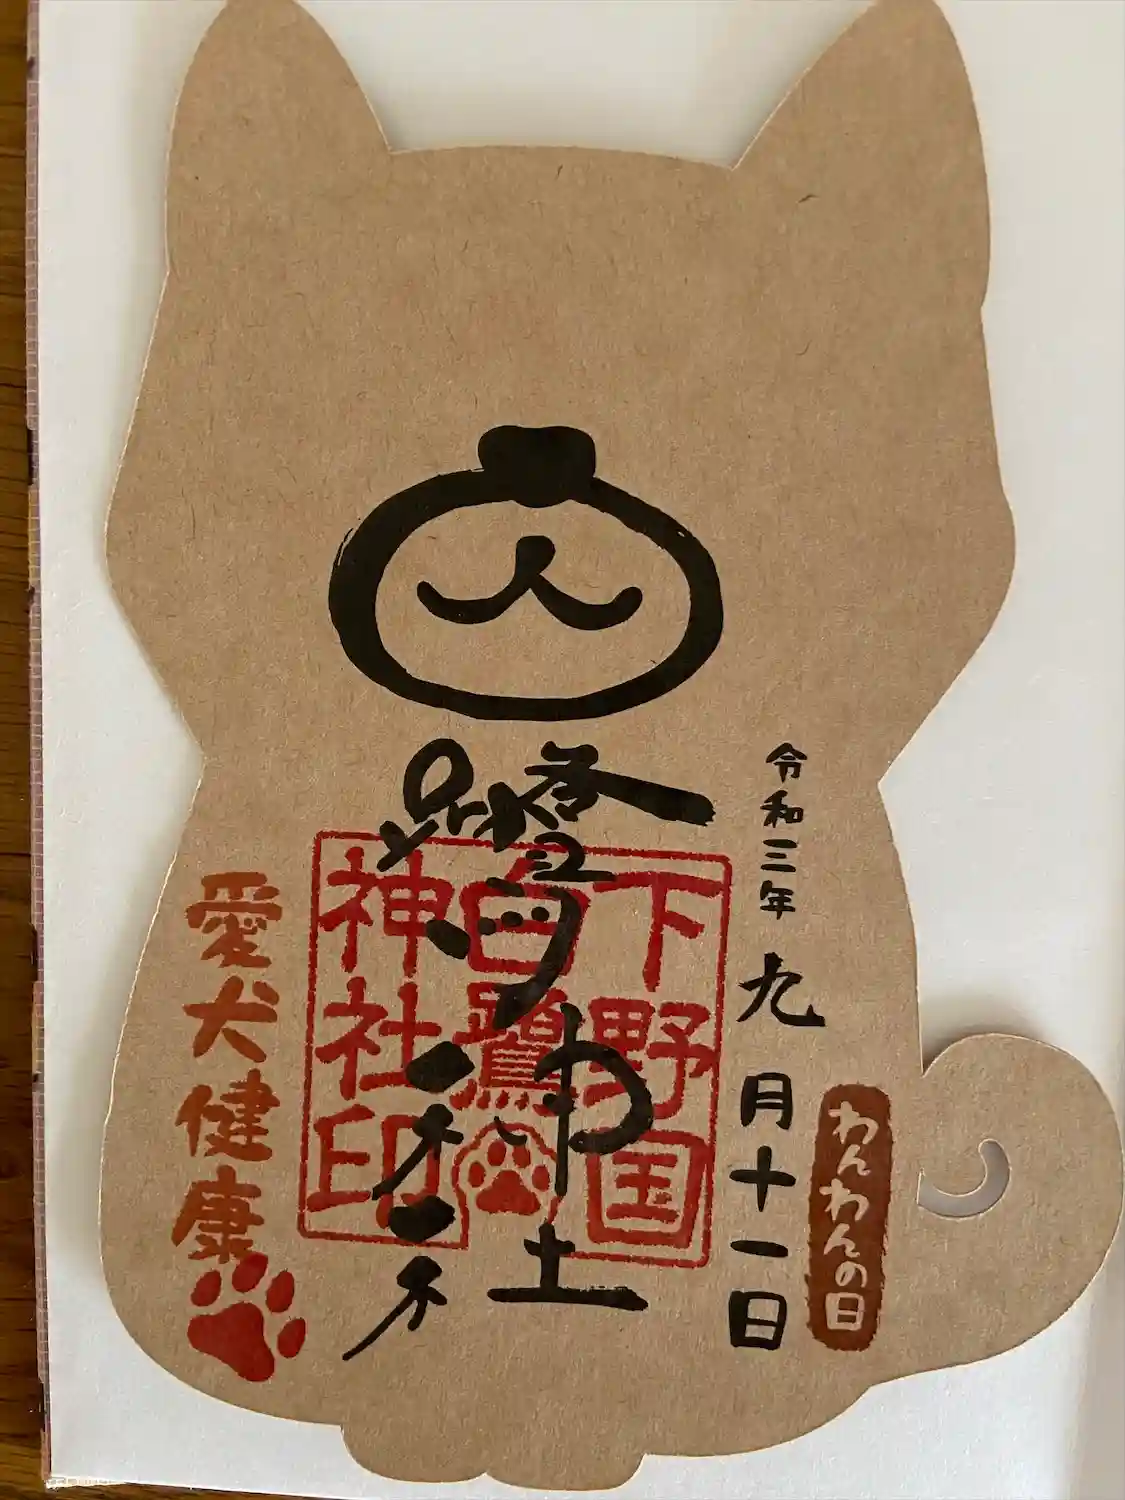 わんわんの日
令和三年九月十一日
下野国
白鷺
神社印
神社
愛犬健康